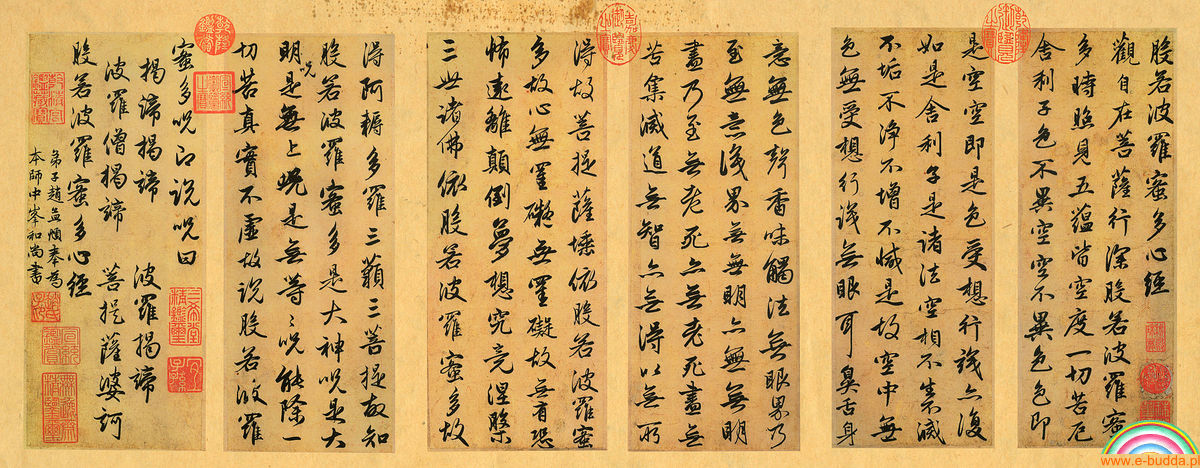 般若波羅蜜多心經
觀自在菩薩行深般若波羅蜜
多時照見五蘊皆空度一切苦厄
舍利子色不異空空不異色色即
是空空即是色受想行識亦復
如是舍利子是諸法空相不生不滅
不垢不淨不增不減是故空中無
色無受想行識無眼耳鼻舌身
意無色聲香味觸法無眼界乃
至無意識界無無明亦無無明
盡乃至無老死亦無老死盡無
苦集滅道無智亦無得以無所
得故菩提薩埵依般若波羅蜜
多故心無罣礙無罣礙故無有恐
怖遠離顛倒夢想究竟涅槃
三世諸佛依般若波羅蜜多故
得阿耨多羅三藐三菩提故知
般若波羅蜜多是大神呪是大
明呪是無上呪是無等〻呪能除一
切苦真實不虛故說般若波羅
蜜多呪即說呪曰
揭諦揭諦 波羅揭諦
波羅僧揭諦 菩提薩婆訶
般若波羅蜜多心經
弟子趙孟頫奉為
本師中峯和尚書
三希堂精鑑璽
宜子孫
www.e-budda.p